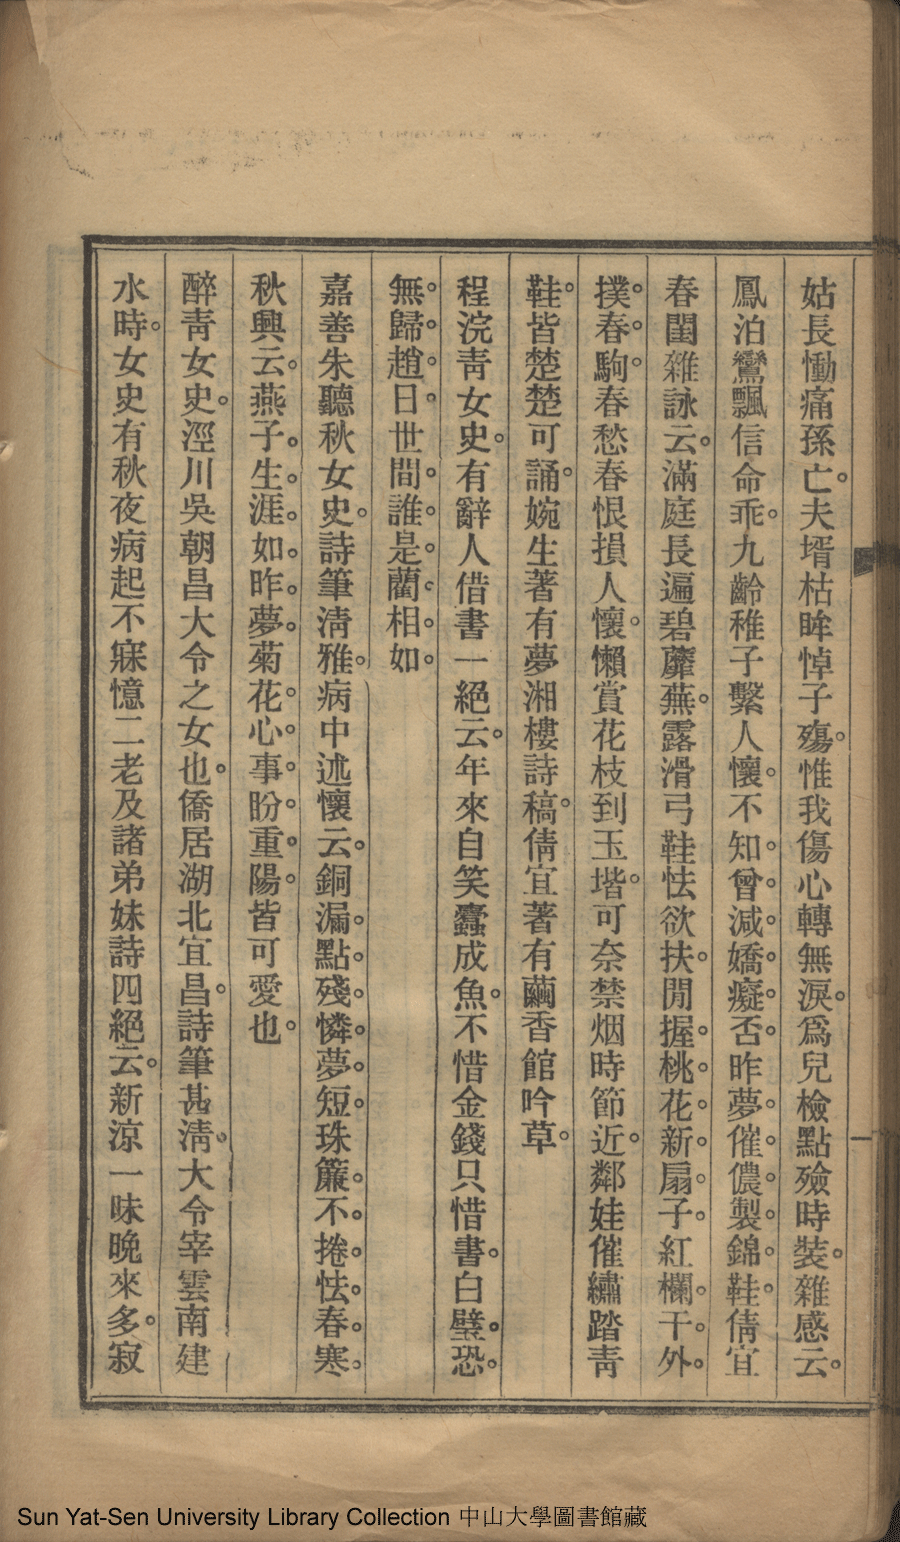 姑長慟痛孫亡。夫壻枯眸悼子殤。惟我傷心轉無淚。爲兒檢點殮時裝。雜感云。
鳳泊鸞飄信命乖。九齡稚子繫人懷。不知。曾。減。嬌。癡。否。昨夢。催。儂。製。錦。鞋。倩宜
春閨雜詠云。滿庭長遍碧蘼蕪。露滑弓鞋怯欲扶。閒握。桃。花。新。扇。子。紅欄。干。外。
撲。春。駒。春愁春恨損人懷。懶賞花枝到玉堦。可奈禁烟時節近。鄰娃催繡踏青
鞋。皆楚楚可誦。婉生著有夢湘樓詩稿。倩宜著有繭香館吟草。
程浣青女史。有辭人借書一絕云。年來自笑蠹成魚。不惜金錢只惜書。白璧。恐。
無。歸。趙。日。世間。誰。是。藺。相。如。
嘉善朱聽秋女史。詩筆淸雅。病中述懷云。銅漏。點。殘。憐。夢。短。珠簾。不。捲。怯。春。寒。
秋興云。燕子。生。涯。如。昨。夢。菊花。心。事。盼。重。陽。皆可愛也。
醉靑女史。涇川吳朝昌大令之女也。僑居湖北宜昌。詩筆甚淸。大令宰雲南建
水時。女史有秋夜病起不寐憶二老及諸弟妹詩四絕云。新涼一味晚來多。寂
Sun Yat-Sen University Library Collection 中山大學圖書館藏